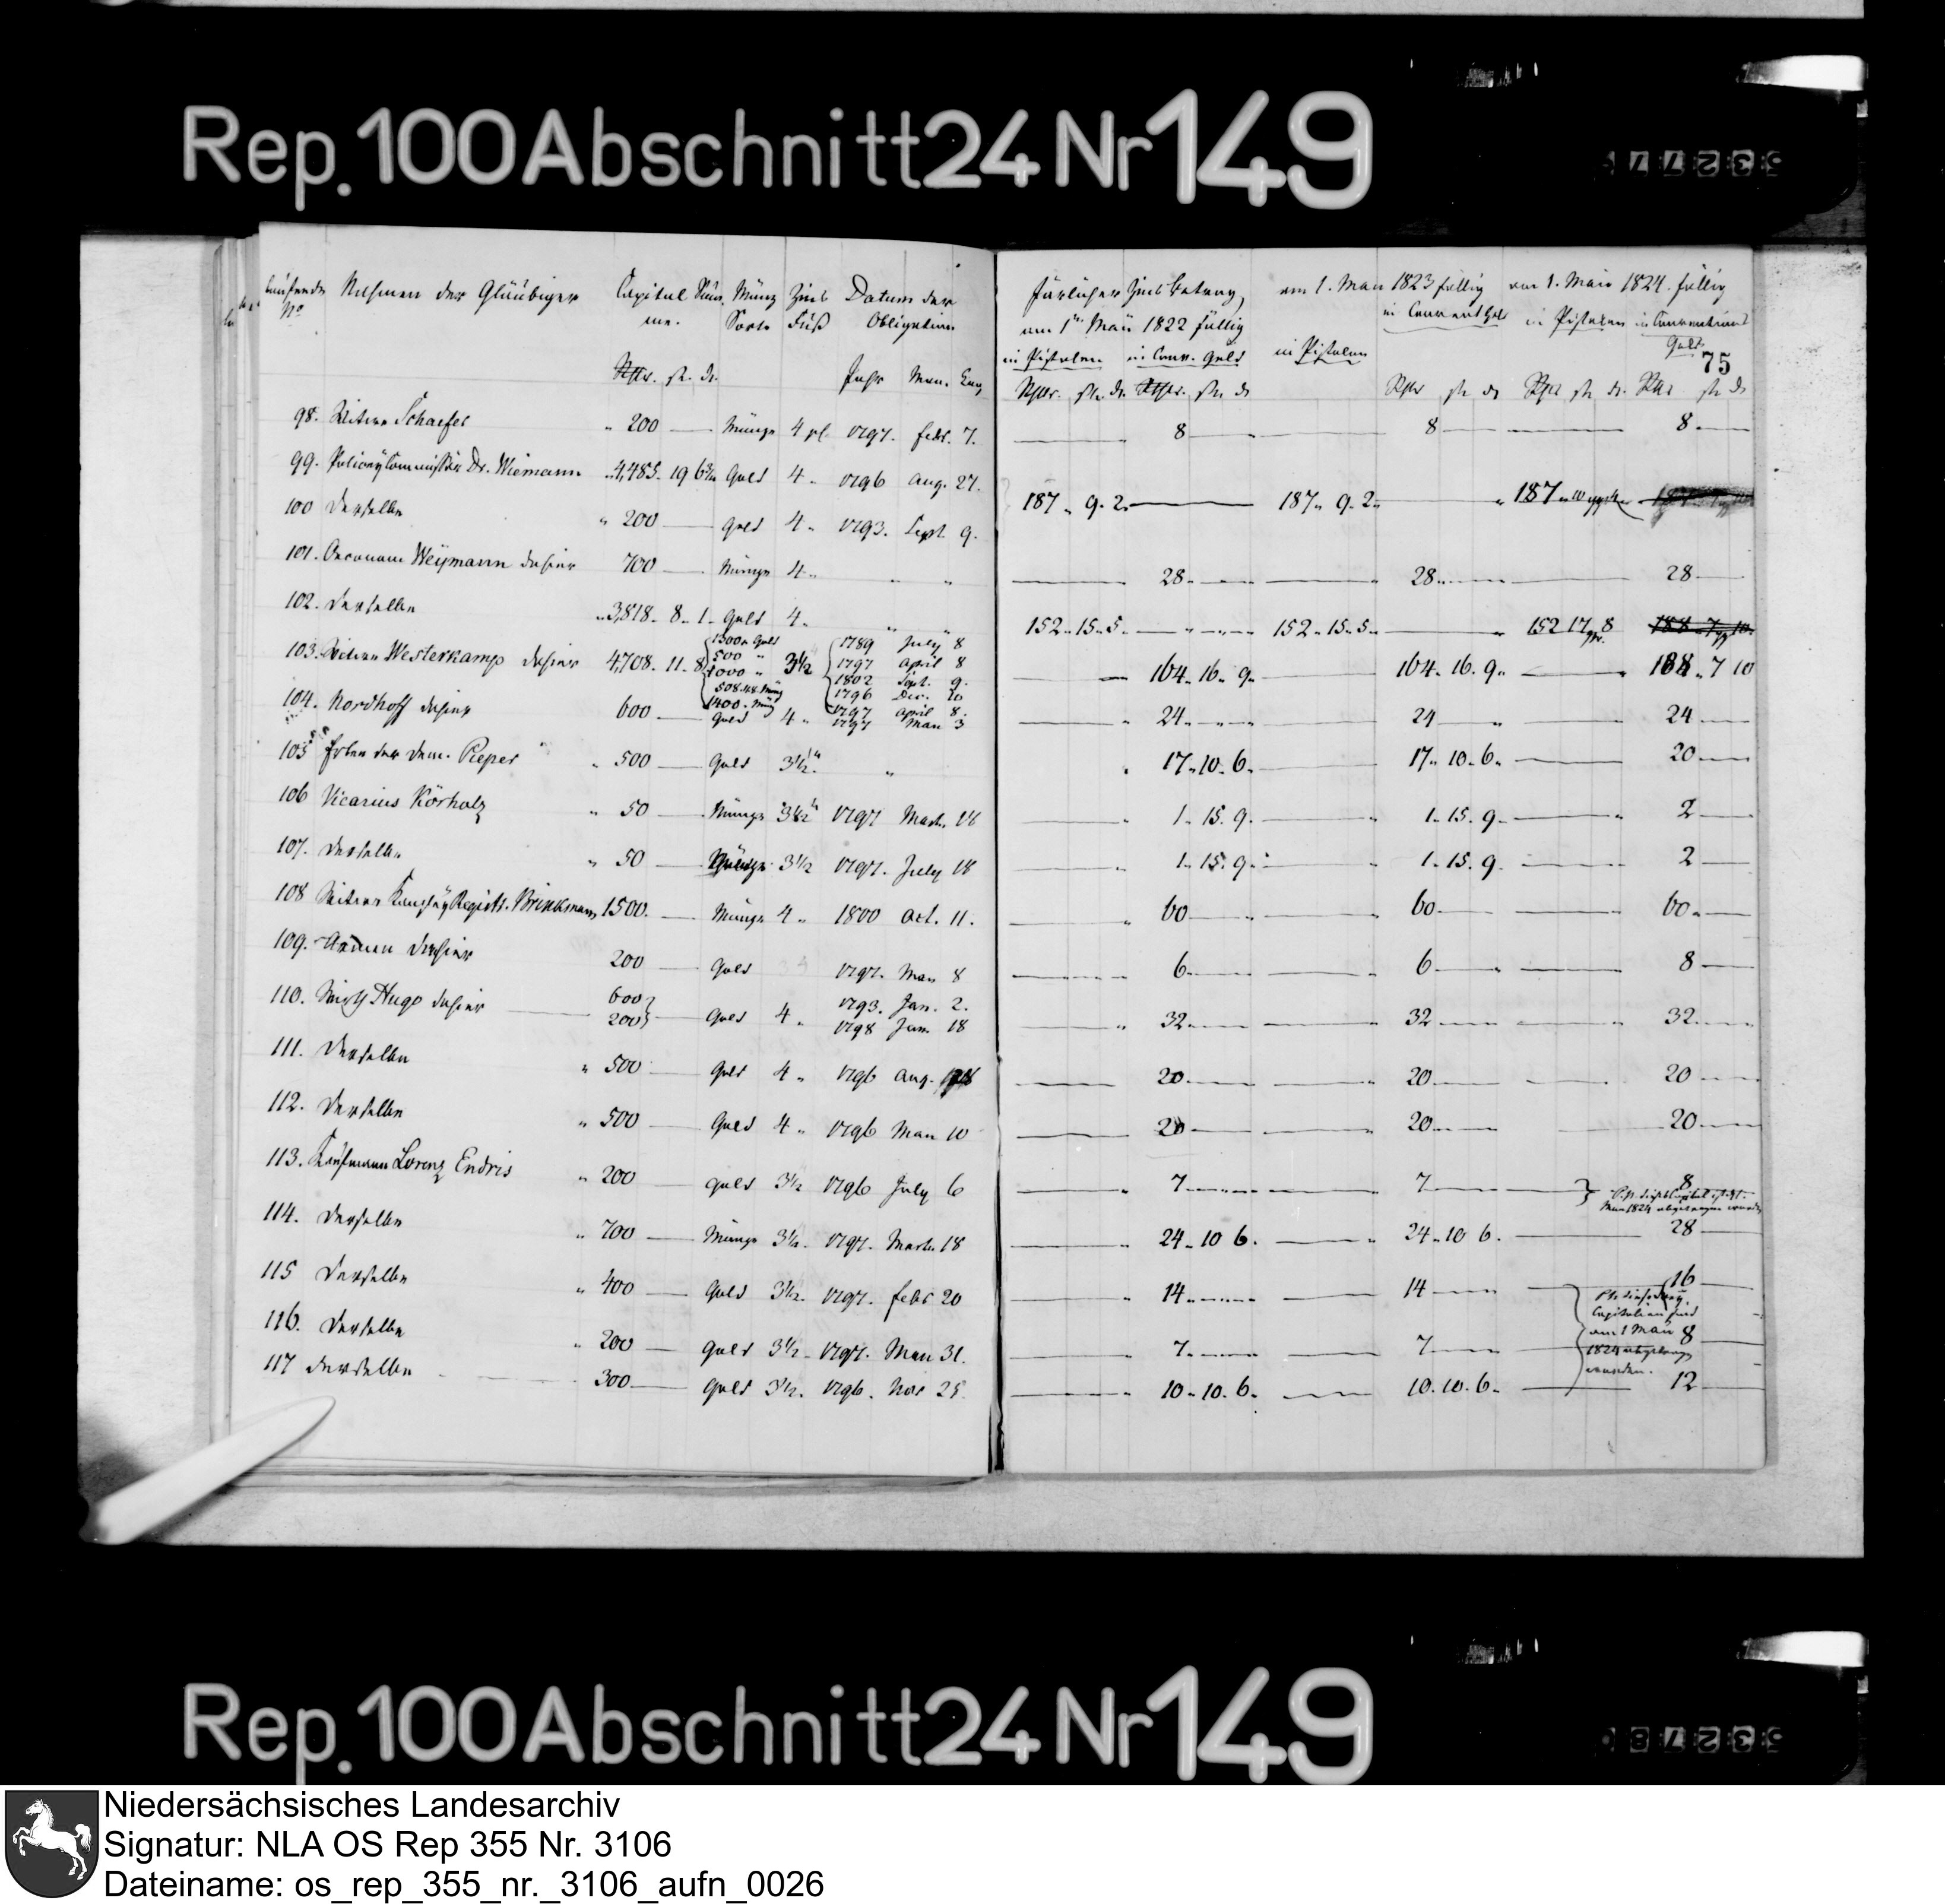 Rep. 100 Abschnitt 24 Nr 149
laufende Nahmen der Gläubiger Capital Sum̄ Münz Zins Datum der
No me. Sorte Fuß Obligation
Rthr. ß. d. Jahr Mon. Tag
98. Witwe Schaefer „ 200 — Münze 4 pC. 1797. febr. 7.
99. Dr. Wiemann „ 4,485. 19 6 Gold 4 „ 1796 Aug. 27.
100 Derselbe „ 200 — Gold 4 „ 1793. Sept. 9.
101. Oeconom Weijmann dahier 700 — Münze 4 „ „ „
102. Derselbe „ 3,818. 8. 1. Gold 4. „ „
103. Witwe Westerkamp dahier 4,708. 11. 8 3½
1300 „ Gold 1789 July 8
500 „ 1797 April 8
1000 „ 1802 Sept. 9.
1796 Dec. 20
1400. Mz 1797 April 8.
104. Nordhoff dahier 600 — Gold 4 „ 1797 May 3
105 Erben der Dem. Pieper „ 500 — Gold 3½ „
106 Vicarius Körholz „ 50 — Münze 3½ 1797 March. 16
107. Derselbe „ 50 — Münze 3½ 1797. July 18
108 Witwe Canzley Registr. Brinkmann 1500. — Münze 4 „ 1800 Oct. 11.
109. Armen dahier 200 — Gold 1797. May 8
110. Hugo dahier 600 1793. Jan. 2.
200 Gold 4 „ 1798 Jan. 18
111. Derselbe „ 500 — Gold 4 „ 1796 Aug.
112. Derselbe „ 500 — Gold 4 „ 1796 May 10
113. Kaufmann Lorenz Endris „ 200 — Gold 3½ 1796 July 6
114. Derselbe „ 700 — Münze 3½. 1797. March. 18
115 Derselbe „ 400 — Gold 3½. 1797. febr 20
116. Derselbe „ 200 — Gold 3½ 1797. May 31.
117 Derselbe 300 — Gold 3½. 1796. Nov 25
Järlicher Zins Betrag, am 1. May 1823 fällig am 1. Mai 1824. fällig
am 1ten Mai 1822 fällig in Convent Geld in Pistolen in Conventions
in Pistolen in Conv. Geld in Pistolen Geld
75
Rthr. ß. d. Rthr. ß. d. Rthr ß d. Rthr ß. d. Rthr ß d.
8 — 8 — 8 —
187 „ 9. 2. — 187 „ 9. 2 „ — „ 187 „ 10
28. — 28. — 28 —
152 „ 15. 5. — 152 „ 15. 5 „ — 152 17 8 188 7 10
164. 16. 9. 164. 16. 9. 188. 7 10
24. — 24 — 24 —
17. 10. 6. — 17. 10. 6. — 20 —
1. 15. 9. — 1. 15. 9. — 2 —
1. 15. 9. — 1. 15. 9. — 2 —
60 — 60 — 60. —
6. — 6 — 8 —
32 — 32 — 32. —
20. — 20 — 20 —
20 — 20. — 20. —
7 — 7 — 8
May 1824 abgetragen worden
24. 10 6. — 24. 10 6. — 28
14. — 14 — 16
Capitalien sind
7. — 7 — am 1 Mai 8
1824 abgetragen
worden.
10. 10. 6. — 10. 10. 6. — 12
Rep. 100 Abschnitt 24 Nr 149
Niedersächsisches Landesarchiv
Signatur: NLA OS Rep 355 Nr. 3106
Dateiname: os_rep_355_nr._3106_aufn_0026